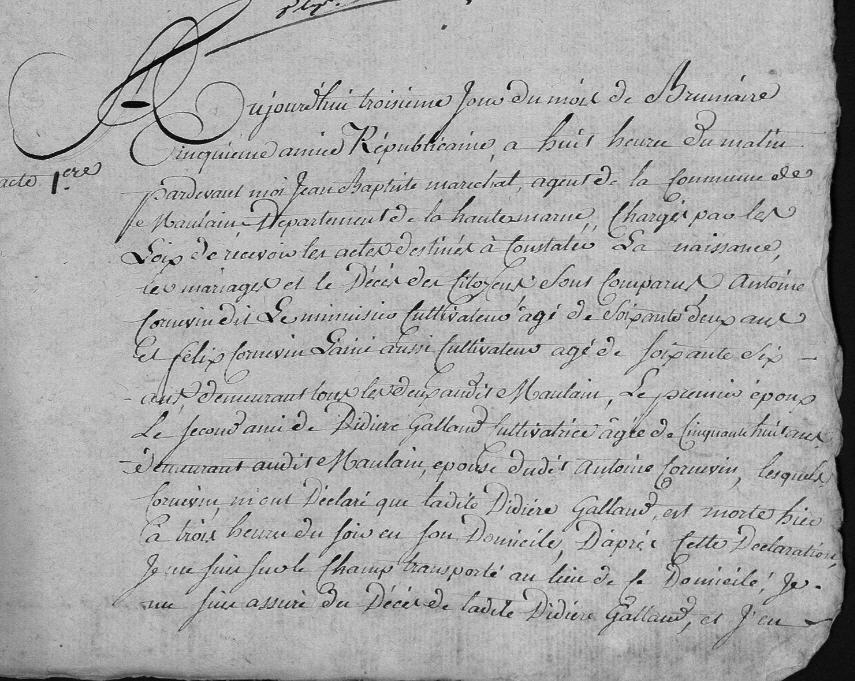 acte 1.ere
Aujourd'hui troisieme Jour du mois de Brumaire
Cinquieme année Républicaine, a huit heure du matin
pardevant moi Jean Baptiste marechal, agent de la Commune de
Maulain Departement de la haute marne, Chargés par les
Loix de récevoir les actes destinés à Constater La naissance,
les mariages et le Décès des Citoyens Sont Comparus Antoine
Cornevin dit Le Cultivateur agé de Soixante deux ans
Et felix Cornevin L'ainé aussi Cultivateur agé de soixante Six
ans, demeurant tous les deux audit Maulain, Le premier époux
Le second ami de Didiere Galland Cultivatrice âgée de Cinquante huit ans
demeurant audit Maulain, epouse dudit Antoine Cornevin, lesquels
Cornevin, m'ont Déclaré que ladite Didiére Galland, est morte hier
à trois heure du soir en son Domicile, D'après Cette Declaration,
Je me suis sur le Champ transporté au lieu de ce Domicile, Je
me suis assuré du Décès de ladite Didiére Galland, et J'en